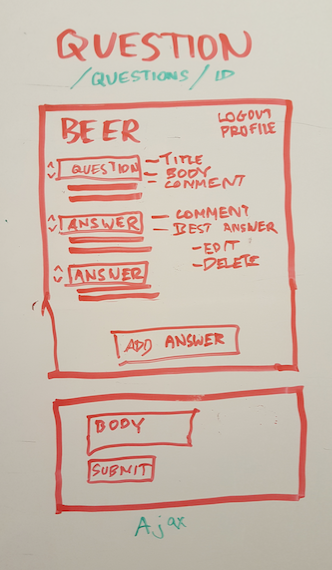 QUESTION
/QUESTIONS/ID
BEER
LOGOUT
PROFILE
QUESTION
-TITLE
-BODY
-COMMENT
ANSWER
-COMMENT
-BEST ANSWER
-EDIT
-DELETE
ANSWER
ADD ANSWER
BODY
SUBMIT
Ajax